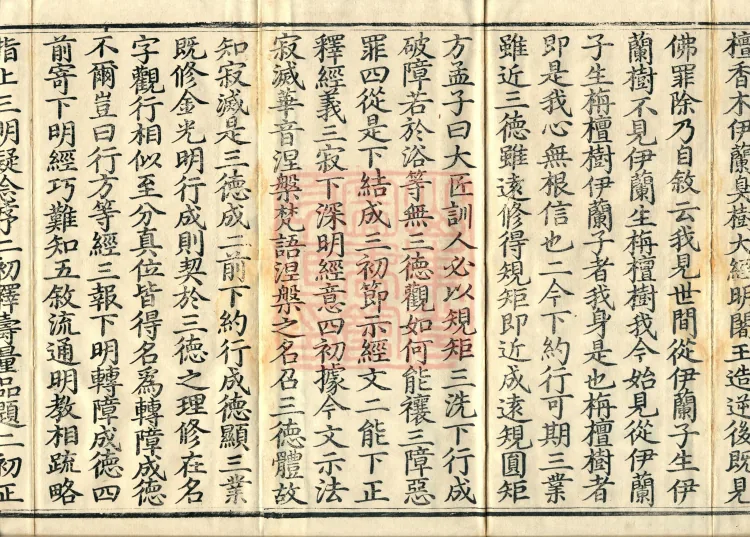 檀香木伊蘭臭樹大經明闍王造逆後既見
佛罪除乃自敘云我見世間從伊蘭子生伊
蘭樹不見伊蘭生栴檀樹我今始見從伊蘭
子生栴檀樹伊蘭子者我身是也栴檀樹者
即是我心無根信也二今下約行可期三業
雖近三德雖遠修得規矩即近成遠規圓矩
方孟子曰大匠訓人必以規矩三洗下行成
破障若於浴等無三德觀如何能禳三障惡
罪四從是下結成三初節示經文二能下正
釋經義三寂下深明經意四初據今文示法
寂滅華音涅槃梵語涅槃之名召三德體故
知寂滅是三德成二前下約行成德顯三業
既修金光明行成則契於三德之理修在名
字觀行相似至分真位皆得名爲轉障成德
不爾豈曰行方等經三報下明轉障成德四
前寄下明經巧難知五敘流通明教相疏略
指止三明疑念序二初釋壽量品題二初正